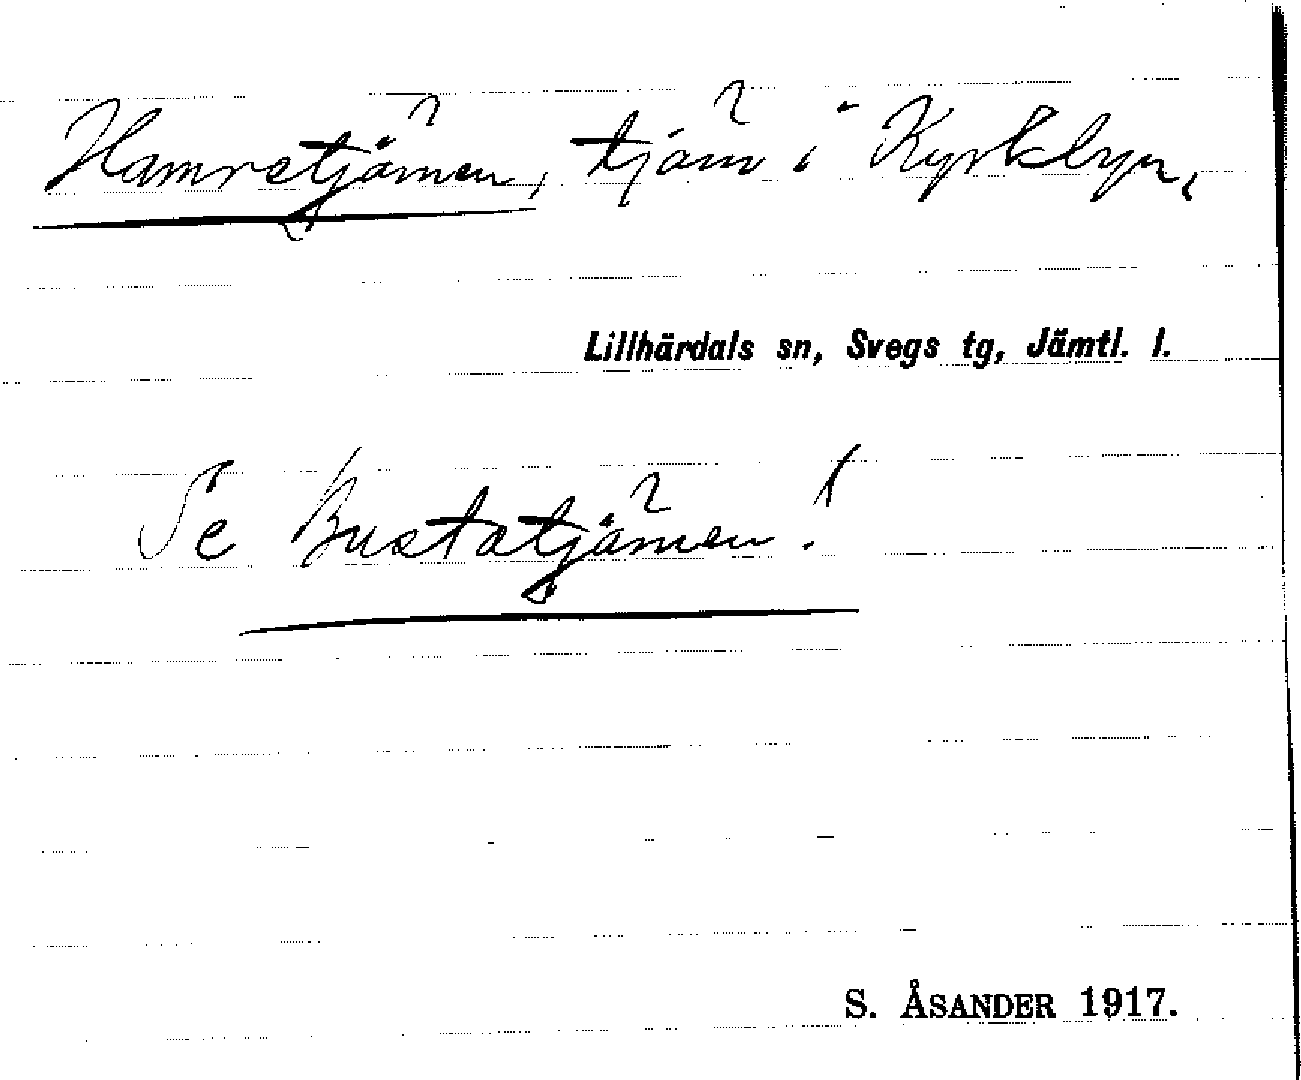 Hamretjärnen, tjärn i Kyrkbyn,
Lillhärdals sn, Svegs tg, Jämtl. l.
Se Bustatjärnen!
S. ÅSANDER 1917.